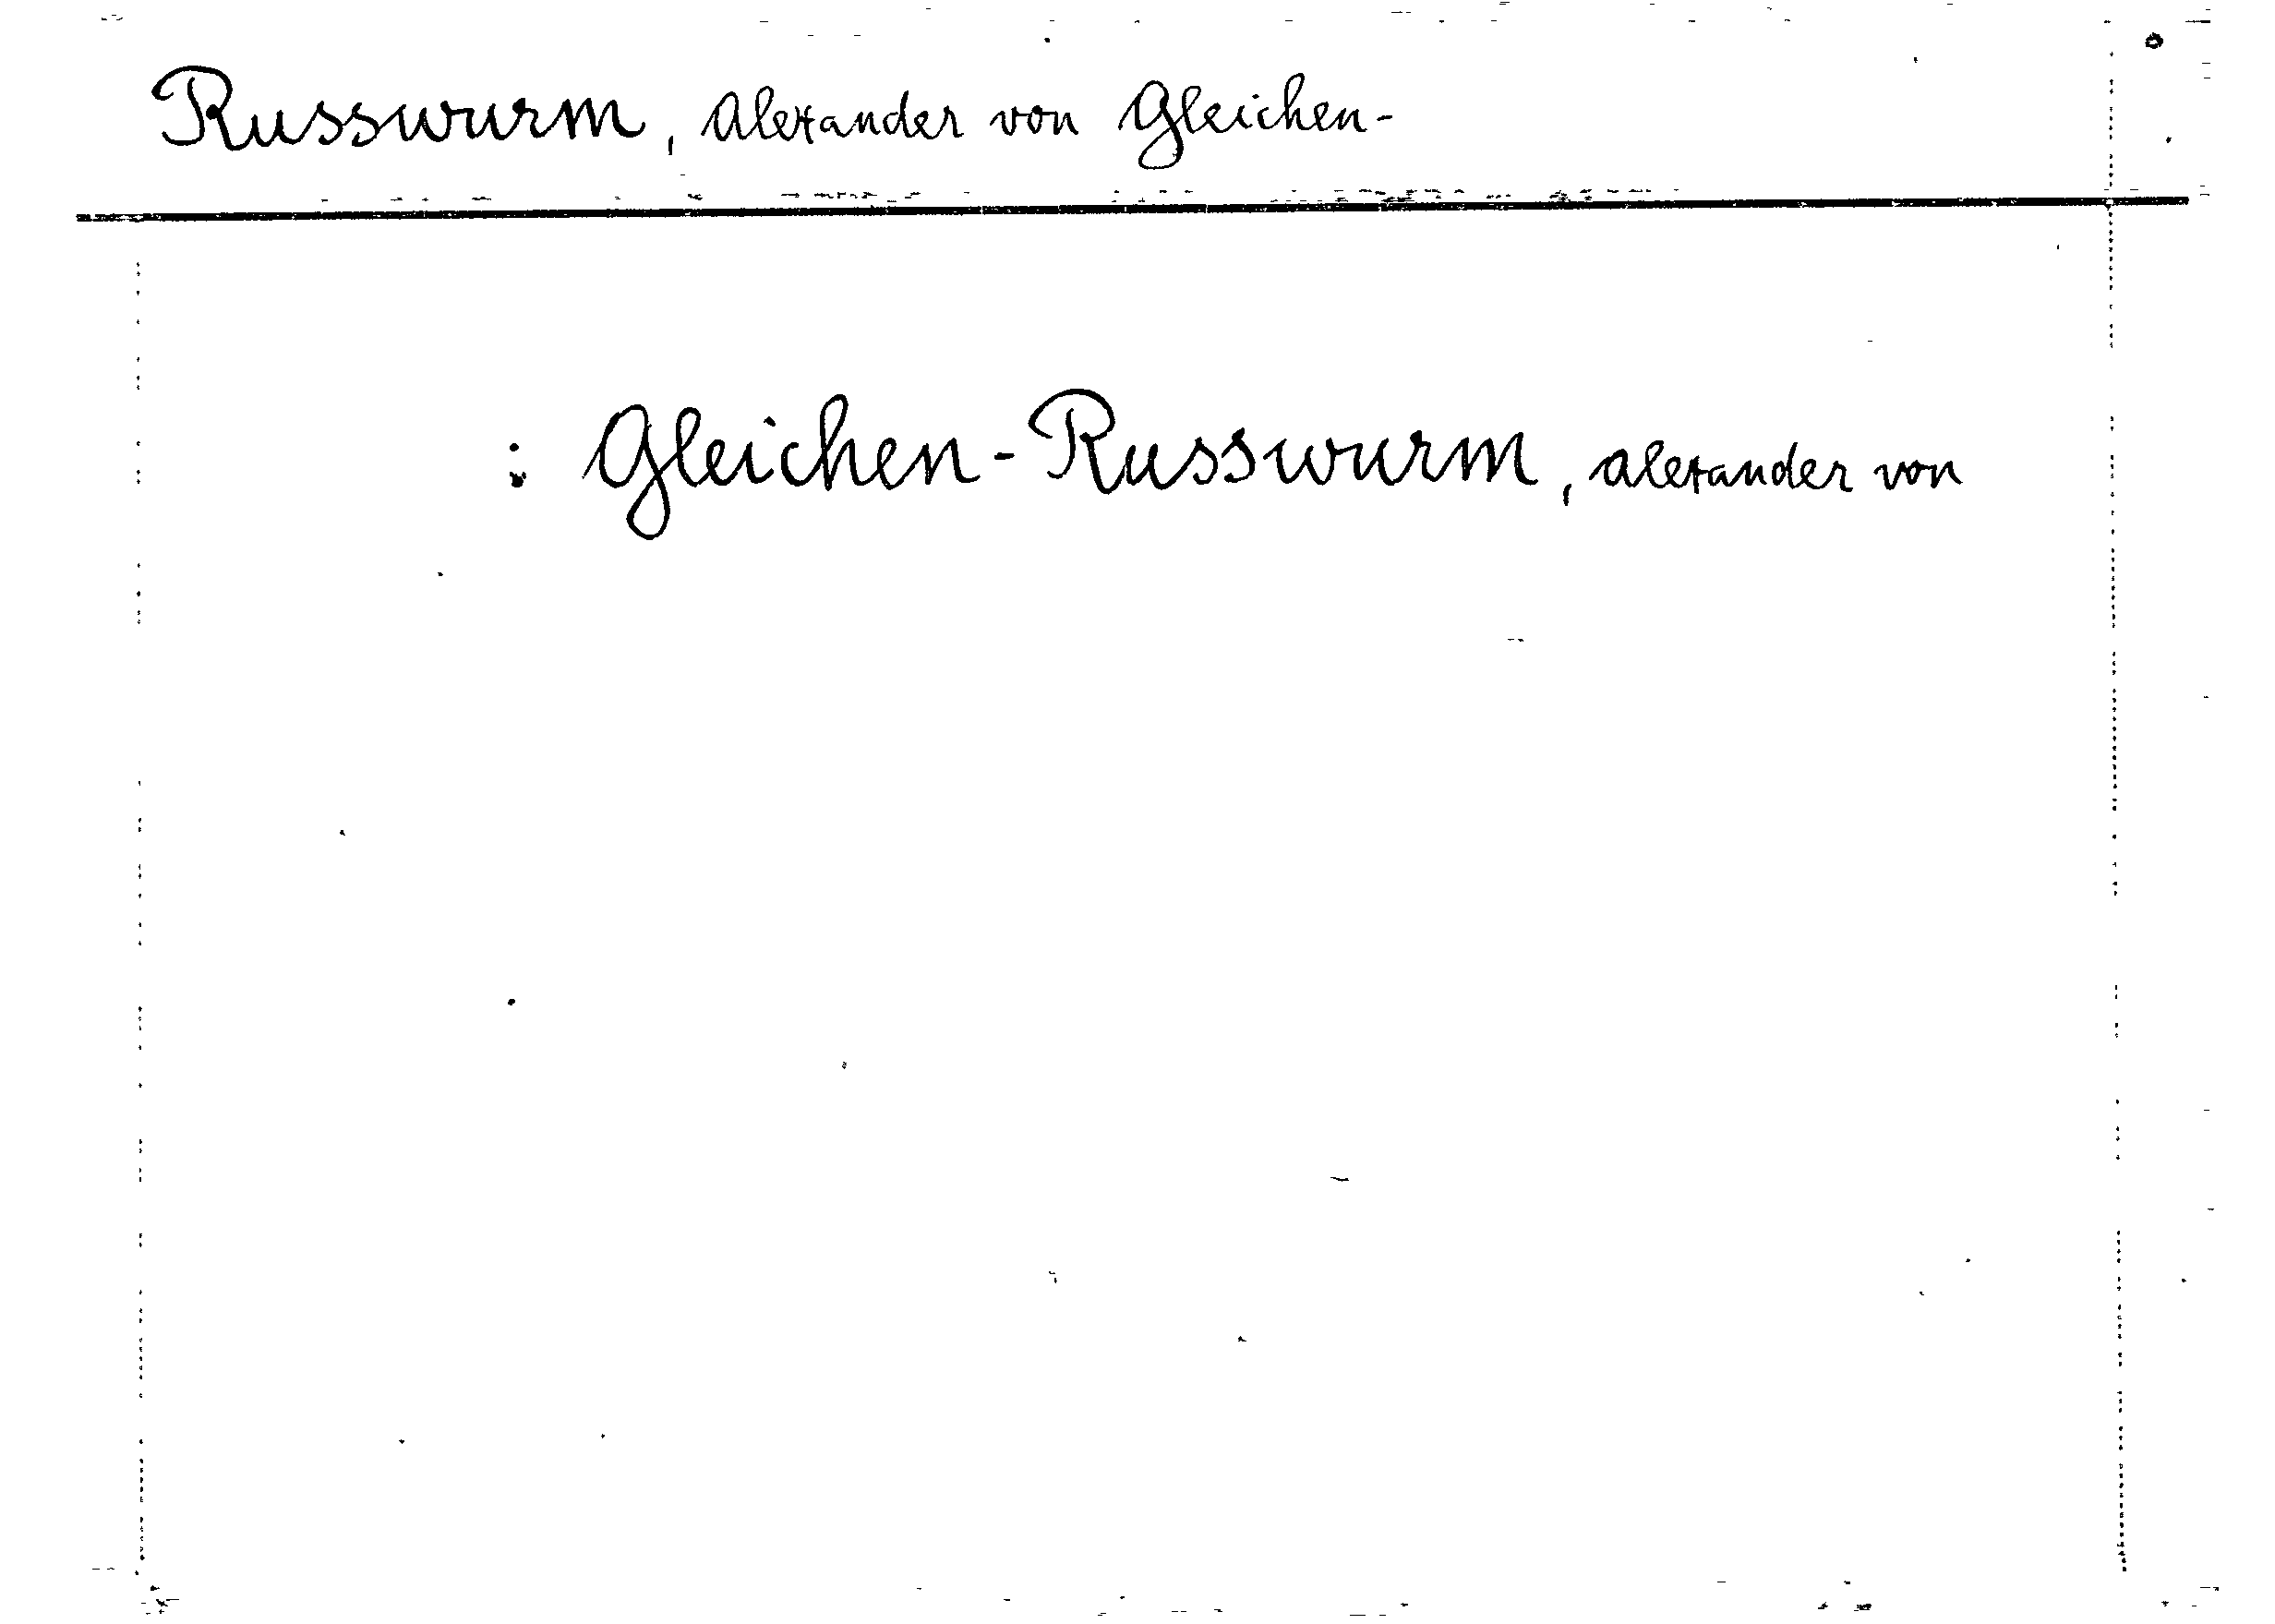 Russwurm, Alexander von Gleichen-
: Gleichen-Russwurm, Alexander von